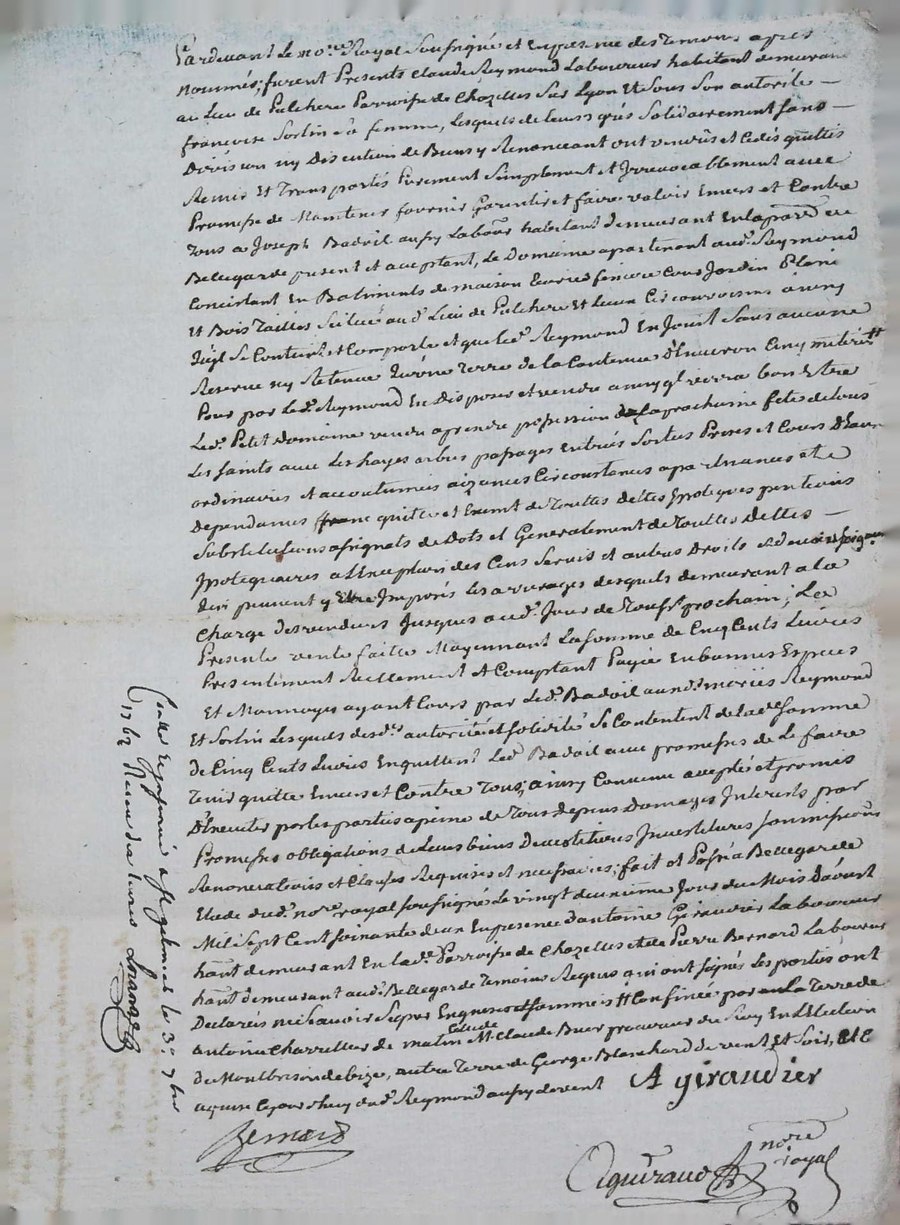 Pardevant Le no.re Royal Sousigné et En presence des Temoins apres
nommés; furent Presents Claude Reymond Laboureur habitant demeurant
au Lieu de Pulchere Parroisse de Chazelles Sur Lyon Et Sous Son autorité
francoise Sortin sa femme, Lesquels de Leurs grés Solidairement sans
Division ny Discution de Biens y Renonceant ont vendus et cedés quittés
Remis Et Transportés Purement Simplement et Irrevocablement avec
Promesse de Maintenir fournir Garentir et faire valoir Envers et Contre
Tous a Joseph Badoil aussy Labour habitant demeurant En la parr. de
Bellegarde present et acceptant, Le Domaine apartenant aud. Reymond
Concistant En Batiments de maison Ecurie feniere Cour Jardin
Et Bois Taillis Scitué aud. Lieu de Pulchere Et Lieux Circonvoisins ainsy
qu'il Se Contient et Comporte et que led. Reymond En Jouit Sans aucune
Reserve ny Retenue terre de la Contenue D'Environ Cinq
Pour par Led. Reymond En Disposer et vendre a verra bon Estre
Led. Petit Domaine vendu a prendre possession La prochaine fete de tous
Les Saints avec Les hayes arbres passages Entrées Sorties Prises et Cours D'Eaux
ordinaires et accoutumées aizances Circonstances apartenances et
Dependances quitte et Exempt de Touttes dettes Ipoteques pentions
Substitutions assignats de Dots et Generalement de Touttes Dettes
Ipotequaires a L'Exeption des Cens Servis et autres Droits
qui peuvent y Etre Imposés Les arrerages desquels demeurant a la
Charge des vendeurs Jusques aud. Jour de Touss. prochain; La
Presente vente faitte Moyennant La Somme de Cinq Cents Livres
Presentement Reellement et Comptant Payée En bonnes Especes
Et Monnoyes ayant Cours par Led. Badoil aux mariés Reymond
Et Sortin Lesquels desd. autorité et solidité Se Contentent de lad. Somme
de Cinq Cents Livres En quittent Led. Badoil avec promesses de Le faire
Tenir quitte Envers et Contre Tous; ainsy Convenu accepté et promis
D'Executer par les parties a peine de Tous depens Domages Interests par
Promesses obligations de Leurs biens Devestitures Investitures Soumissions
Renonciations et Clauses Requises et necessaires; fait et Passé a Bellegarde
Etude dud. no.re royal soussigné Le vingt deuxieme Jour du Mois D'aoust
Mil Sept Cent Soixante deux En presence D'antoine Giraudier Laboureur
hant demeurant En lad. Parroisse de Chazelles et de Pierre Bernard Laboureur
hant demeurant aud. Bellegarde Temoins Requis qui ont signés Les parties ont
Declarés ne Savoir Signer Enquises et sommeis Confinée par La Terre de
antoine Charretier de matin Celle de M. Claude Buer procureur du Roy En L'Election
de Montbrison de bize, autre Terre de George Blanchard de vent Et Soir, et
Reymond aussy de vent
A giraudier
Bernard
Aguiraud
no.re
royal
Controllé a St galmier le 3.e 7bre
1762 Recu